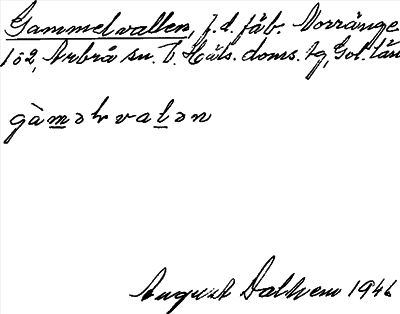 Gammelvallen, f.d. fäb. Norränge
1ö2, Arbrå sn. V. Häls. doms. tg, Gvl. län
gàməlvalən
August Dalhem 1946